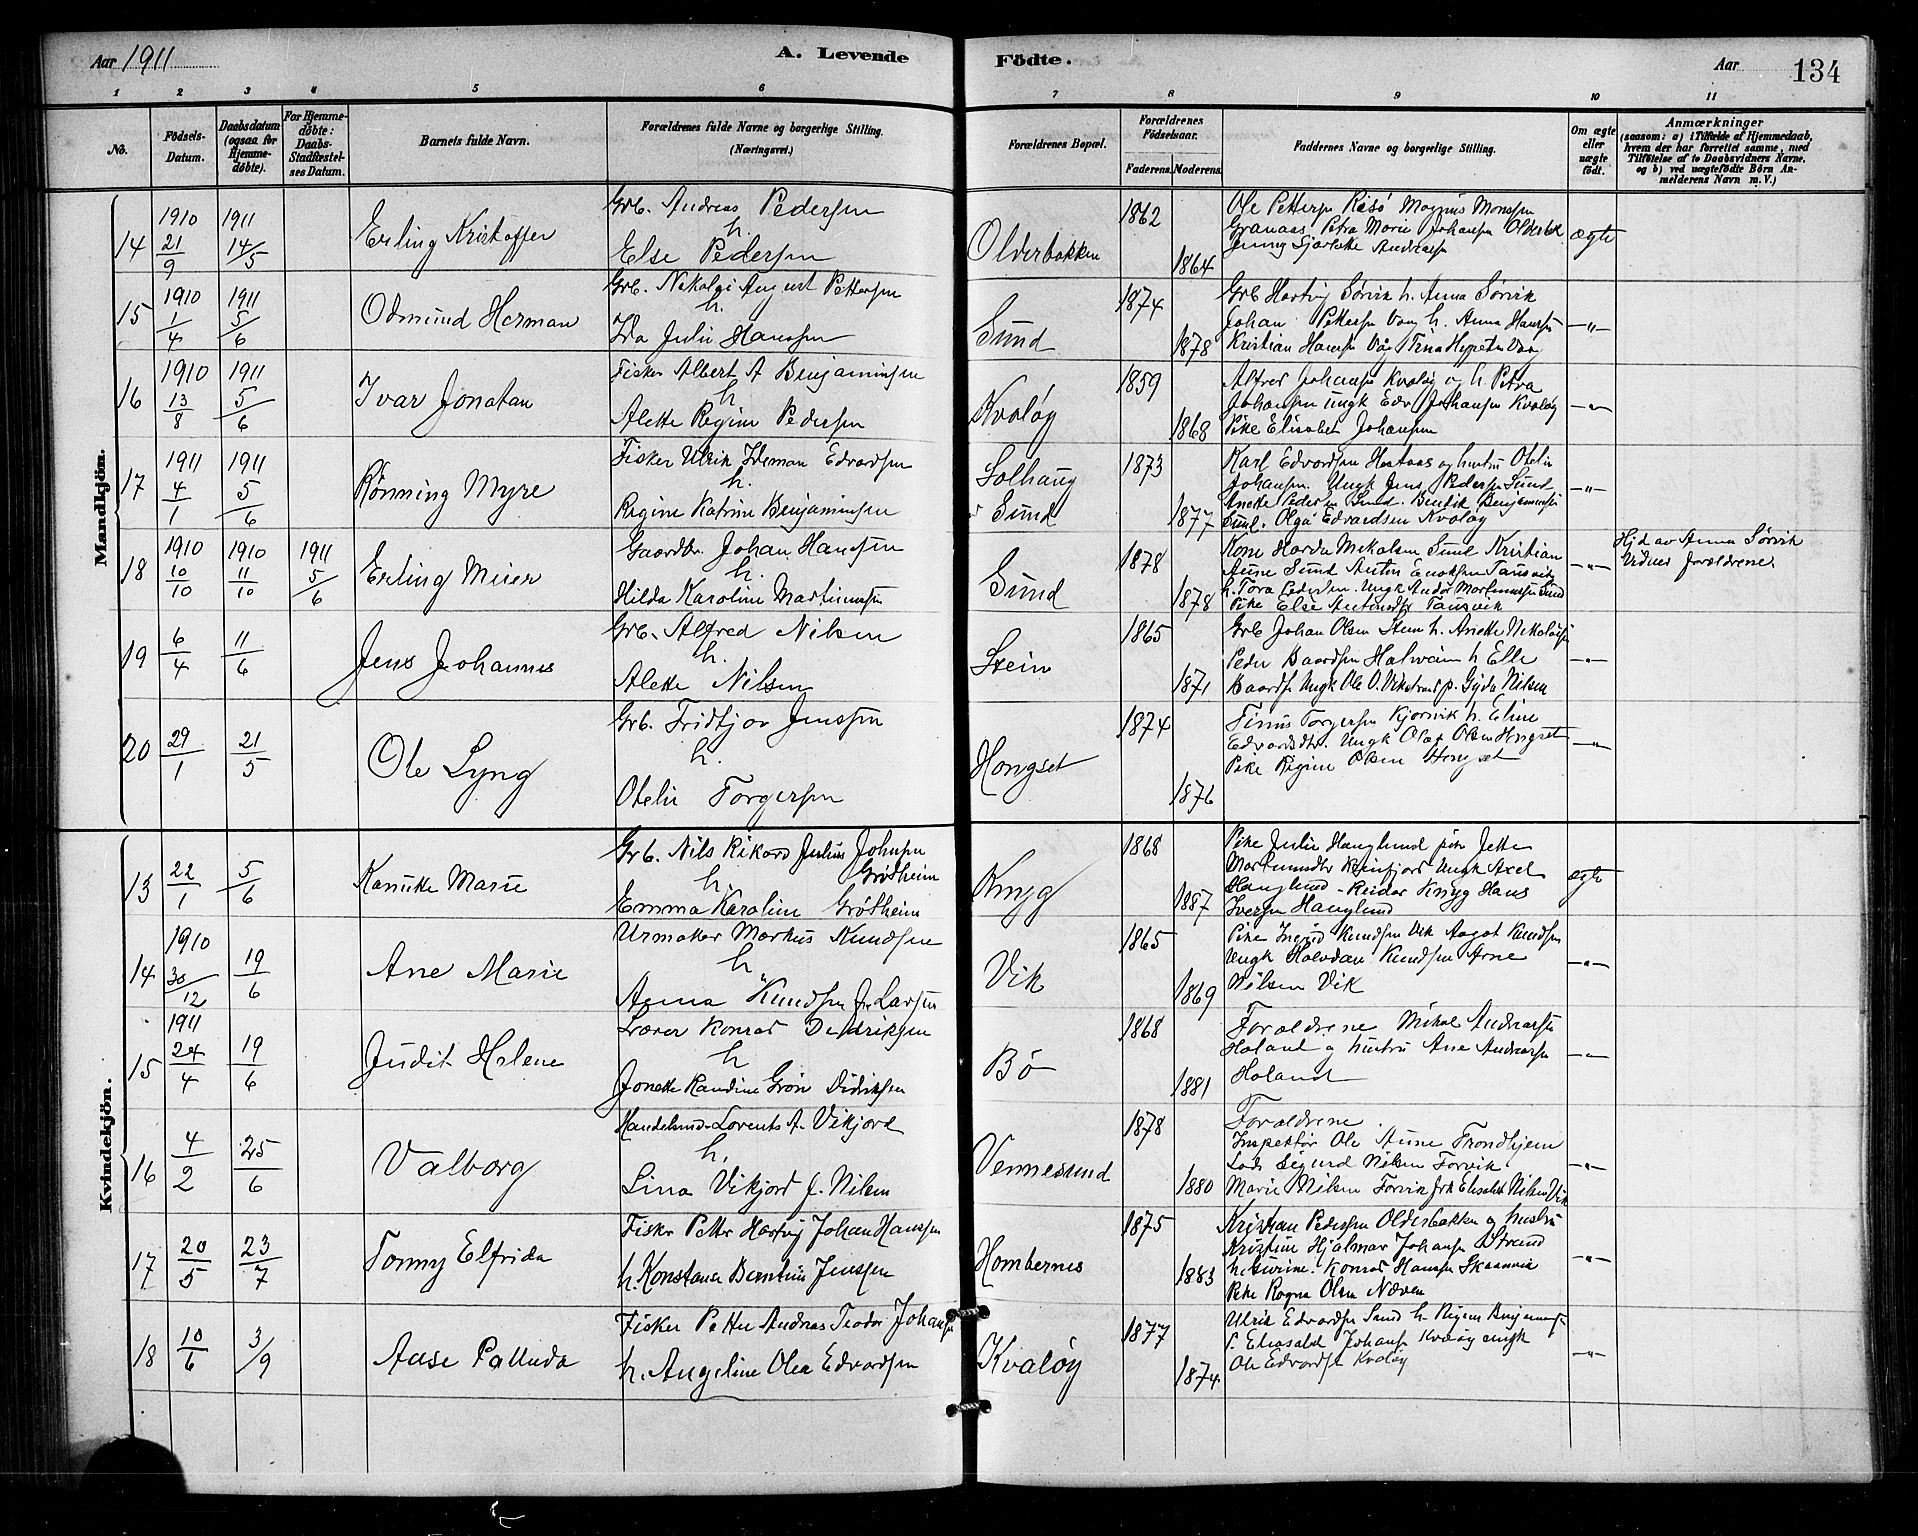 Aar 1911
A. Levende
Fødte.
Aar
134
1 2 3 4 5 6 7 8 9 10 11
No.
Fødsels-Datum.
Daabsdatum (ogsaa for Hjemme-døbte).
For Hjemme-døbte: Daabs-Stadfæstel-ses Datum.
Barnets fulde Navn.
Forældrenes fulde Navne og borgerlige Stilling. (Næringsvei.)
Forældrenes Bopæl.
Forældrenes Fødselsaar.
Faderens. Moderens.
Faddernes Navne og borgerlige Stilling.
Om ægte eller uægte født.
Anmærkninger
(saasom: a) i Tilfælde af Hjemmedaab, hvem der har forrettet samme, med Tilføielse af to Daabsvidners Navne, og b) ved uægtefødte Børn An-melderens Navn m. V.)
Mandkjön.
14 1910 21/9 1911 14/5 Erling Kristoffer
Grb. Andreas Pedersen
h.
Else Pedersen
Olderbakken 1862 1864
Ole Pettersen Risø Magnus Monssen
Granaas Petra Marie Johansen Olderbk.
Jenny Andreasen
ægte
15 1910 1/4 1911 5/6 Odmund Herman
Grb. Nikolai August Pettersen
h.
Ida Julie Hanssen
Sund 1874 1878
Grb Hartvig Sørvik h. Anna Sørvik
Johan Pettersen Vaag h. Anna Hanssen
Kristian Hansen Våg Tina Vaag
-"-
16 1910 13/8 1911 5/6 Ivar Jonatan
Fisker Albert A Benjaminsen
h.
Alette Regine Pedersen
Kvaløy 1859 1868
Alfred Johansen Kvaløy og h. Petra
Johansen ungk Edv Johansen Kvaløy
Pike Elisabet Johansen
-"-
17 1911 4/1 1911 5/6 Rønning Myre
Fisker Ulrik Ideman Edvardsen
h.
Regine Katrine Benjaminsen
Solhaug
Sund 1873 1877
Karl Edvardsen Hestaas og hustru Otelie
Johansen. Ungk Jens Pedersen Sund
Anette Pedersen Sund. Bendik Benjaminsen
Sund. Olga Edvardsen Kvaløy
-"-
18 1910 10/10 1910 11/10 1911 5/6 Erling Meier
Gaardbr. Johan Hanssen
h.
Hilda Karoline Martinussen
Sund 1878 1878
Kone Harda Mikalsen Sund Kristian
Aune Sund Anton Enoksen Tausvik
h. Tora Pedersen. Ungk Andor Martinussen Sund
Pike Else Antonsdtr Tausvik
-"-
Hjd av Anna Sørvik
Vidner forældrene
19 6/4 11/6 Jens Johannes
Grb. Alfred Nilsen
h.
Alette Nilsen
Stein 1865 1871
Grb Johan Olsen Stein h. Anette Nikolaisen
Peder Baardsen Halveien h. Elle
Baards. Ungk Ole O. Vikstrand p. Gyda Nilsen
-"-
20 29/1 21/5 Ole Lyng
Grb. Fridtjov Jenssen
h.
Otelie Torgersen
Hongset 1874 1876
Tinus Torgersen Kjørsvik h. Eline
Edvardsdtr. Ungk Olaf Olsen Hongset
Pike Regine Olsen Hongset
-"-
Kvindekjön.
13 22/1 5/6 Kanutte Marie
Grb. Nils Rikard Julius Johnsen
h. Grøtheim
Emma Karoline Grøtheim
Knyg 1868 1887
Pike Julie Hauglund pike Jette
Martinusdtr Reinfjord Ungk Axel
Hauglund - Reidar Knyg Hans
Iversen Hauglund
ægte
14 1910 30/12 19/6 Ane Marie
Urmaker Markus Knudsen
h.
Anna Knudsen f. Larsen
Vik 1865 1869
Pike Ingrid Knudsen Vik Aagot Knudsen
Ungk Halvdan Knudsen Arne
Nilsen Vik
-"-
15 1911 24/4 19/6 Judit Helene
Lærer Konrad Didriksen
h
Jonette Randine Grøn Didriksen
Bø 1868 1881
Forældrene Mikal Andreassen
Holand og hustru Ane Andreassen
Holand
-"-
16 4/2 25/6 Valborg
Handelsmd. Lorents A. Vikjord
h.
Lina Vikjord f. Nilsen
Vennesund 1878 1880
Forældrene.
Inspektør Ole Aune Trondhjem
Lods Sigurd Nilsen Torvik
Marie Nilsen Torvik frk Elisabet Nilsen Vik
-"-
17 20/5 23/7 Tonny Elfrida
Fisker Petter Hartvig Johan Hanssen
h. Konstanse Berntine Jenssen
Hombernes 1875 1883
Kristian Pedersen Olderbakken og hustru
Kristine Hjalmar Johansen Strand
h. Gurine. Konrad Hanssen Skaanvik
Pike Ragna Olsen Næven
-"-
18 10/6 3/9 Aase Palluda
Fisker Petter Andreas Teodor Johansen
h. Angeline Olea Edvardsen
Kvaløy 1877 1874
Ulrik Edvardsen Sund h Regine Benjaminsen
p. Elisabet Johansen Kvaløy ungk
Ole Edvardsen Kvaløy
-"-